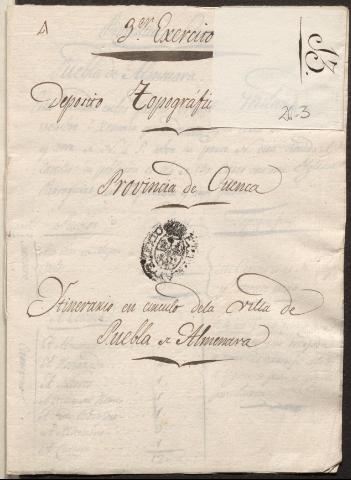 A
3.er Exercito
20-3
Deposito Topográfi
Provincia de Cuenca
Itinerario en circulo dela villa de
Puebla de Almenara